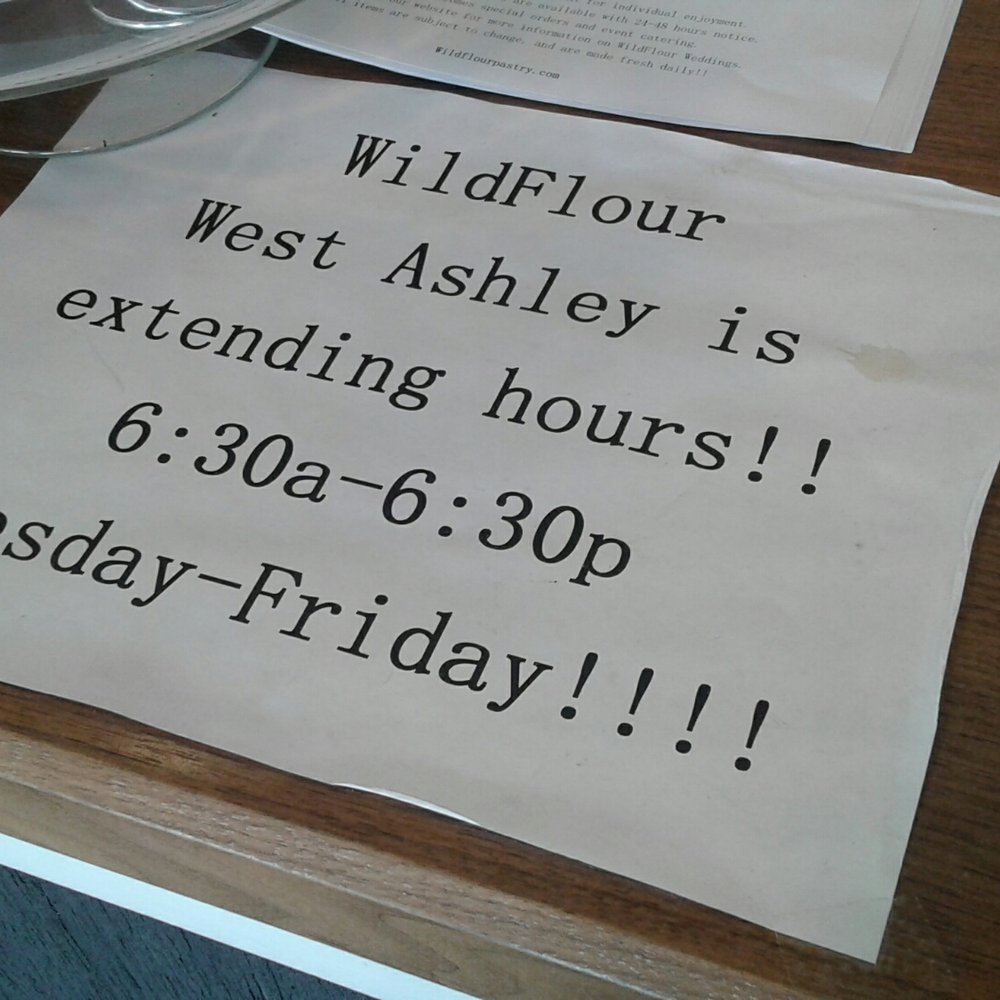 for individual enjoyment.
are available with 24-48 hours notice.
special orders and event catering.
our website for more information on WildFlour Weddings.
items are subject to change, and are made fresh daily!!
Wildflourpastry.com
WildFlour
West Ashley is
extending hours!!
6:30a-6:30p
esday-Friday!!!!